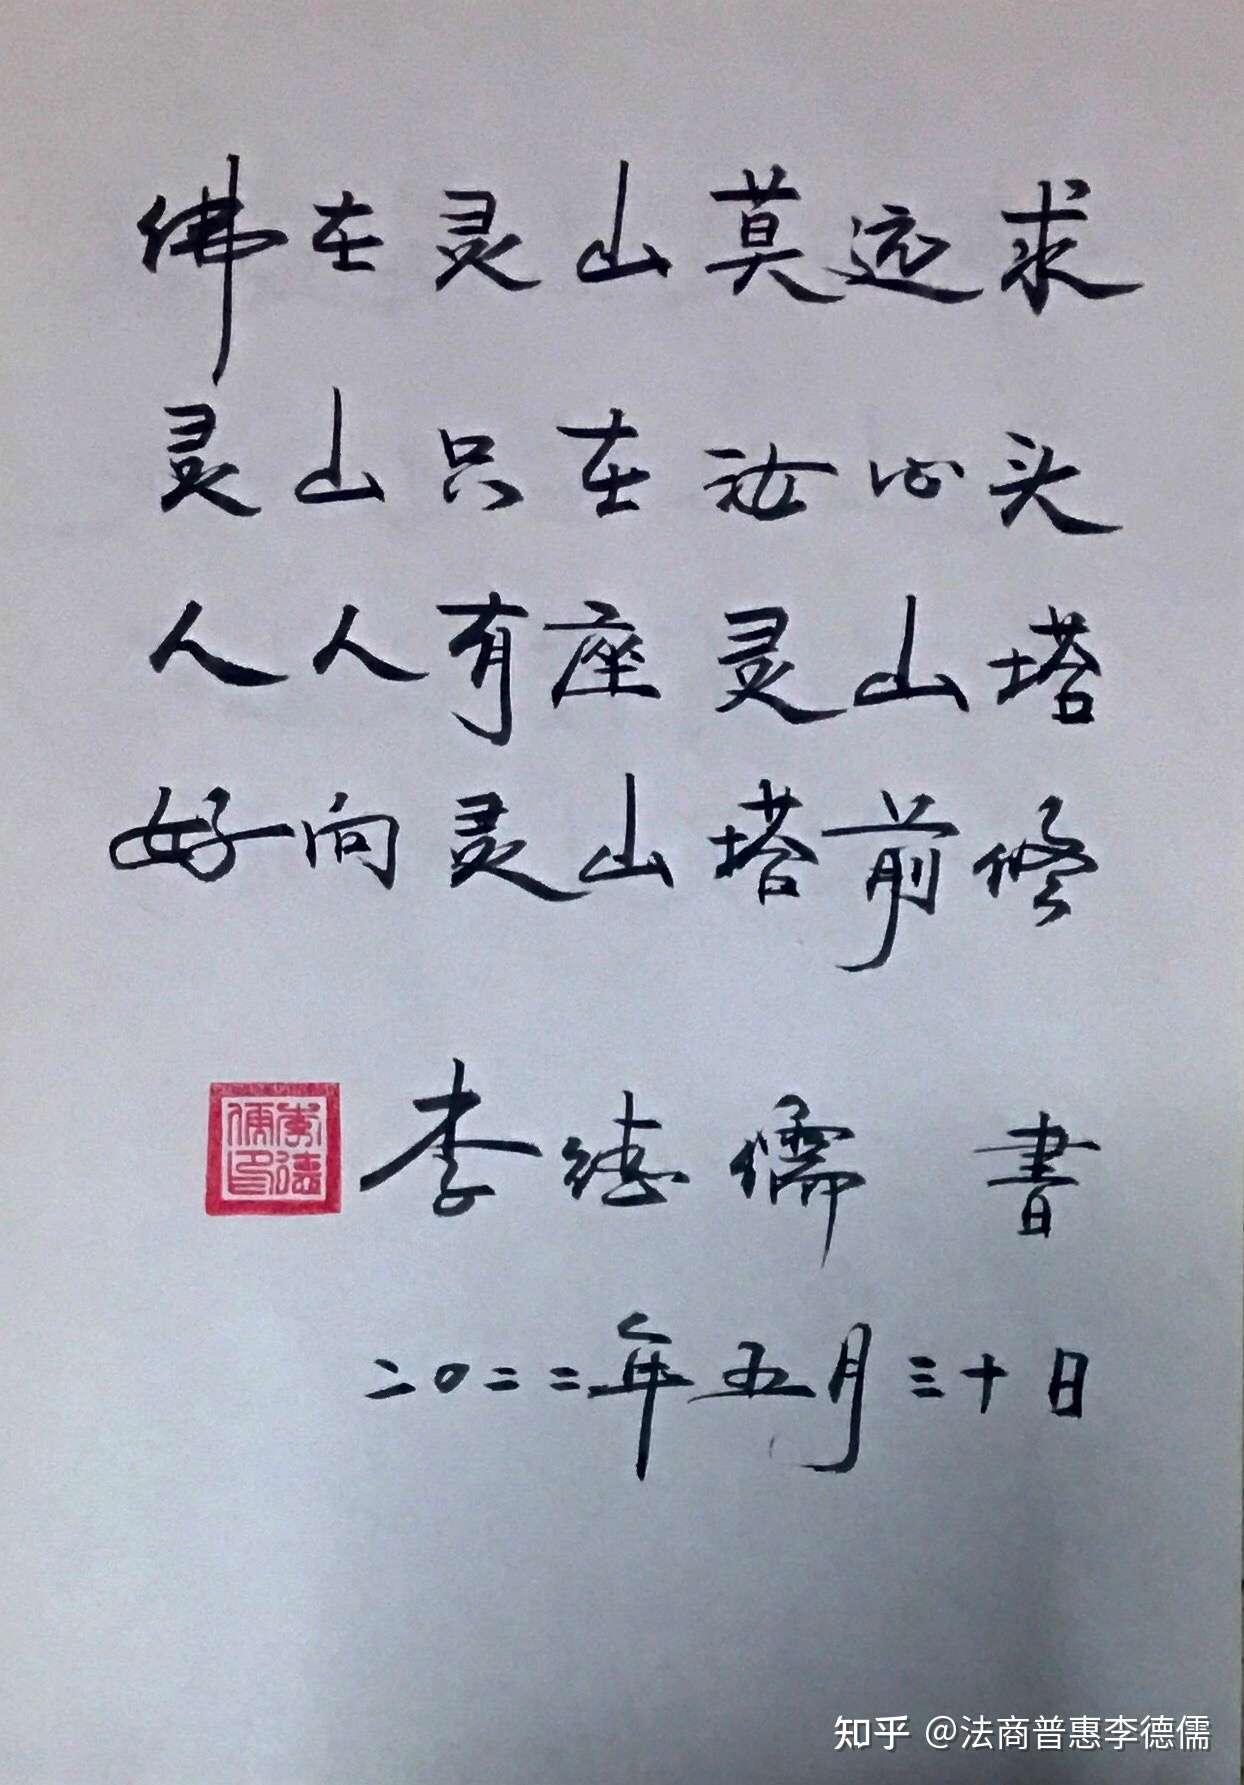 佛在灵山莫远求
灵山只在汝心头
人人有座灵山塔
好向灵山塔前修
李德儒印
李德儒 書
二〇二二年五月三十日
知乎 @法商普惠李德儒